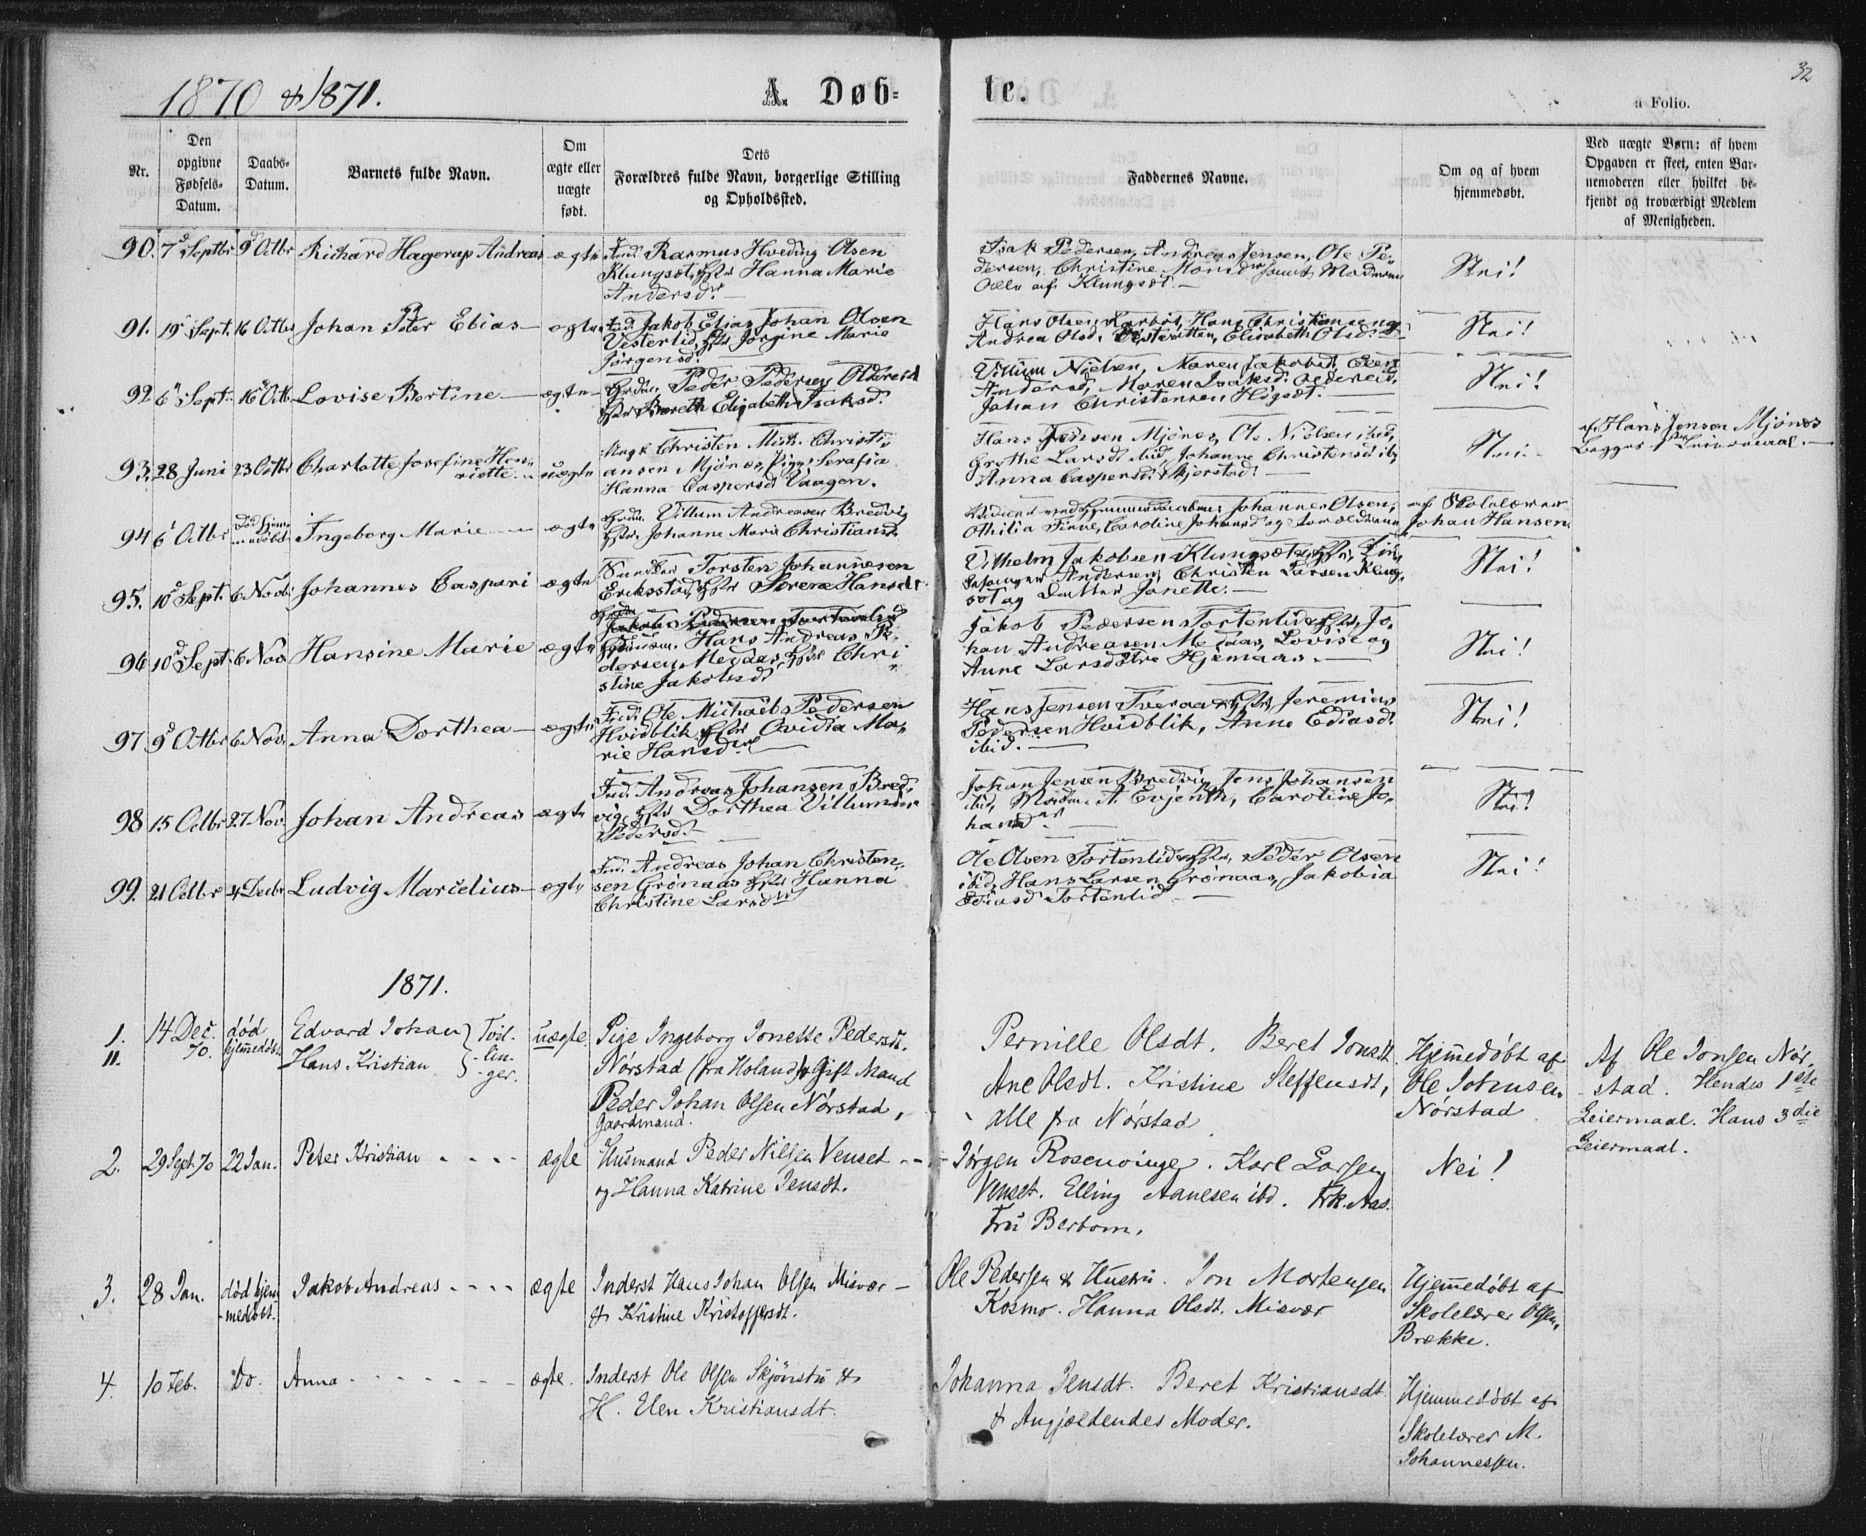 1870 & 1871.
A. Døb-
te.
32
a Folio.
Nr.
Den
opgivne
Fødsels-
Datum.
Daabs-
Datum.
Barnets fulde Navn.
Om
ægte eller
uægte
født.
Dets
Forældres fulde Navn, borgerlige Stilling
og Opholdssted.
Faddernes Navne.
Om og af hvem
hjemmedøbt.
Ved uægte Børn: af hvem
Opgaven er skeet, enten Bar-
nemoderen eller hvilket be-
kjendt og troværdigt Medlem
af Menigheden.
90. 7 Septbr 9 Octbr Richard Hagerup Andreas ægte
Rasmus Hveding Olsen
Klungset, Hanna Marie
Andersd.
Isak Pedersen, Andreas Jensen, Ole Pe-
dersen, Christine
af Klungset.
Nei!
91. 19 Sept. 16 Octbr Johan Peter Elias ægte
Jakob Elias Johan Olsen
Vesterlid, Jorgine Marie
Jørgensd.
Hans Olsen, Hans Christiansen og
Andrea Olsd. Elisabeth Olsd.
Nei!
92 6 Sept. 16 Octb. Lovise Bertine ægte
Peder Pedersen Oldereid
Bereth Elisabeth Isaksd.
Villum Nielsen, Maren Jakobsd.
Andersd, Maren Isaksd. Oldereid,
Johan Christensen Høgset.
Nei!
93. 28 Juni 23 Octbr Charlotte Josefine Hen-
riette uægte
Christen Mich. Christi-
ansen Mjønes, Pige Serafia
Hanna Caspersd Vaagen.
Hans Jensen Mjønes, Ole Nielsen ibid,
Grethe Larsdt ibid, Johanne Christensd ib,
Anna Caspersd. Skjerstad.
Nei
af Hans Jensen Mjønes
Begges Leiermaal
94 6 Octbr Død hjem-
medøbt Ingeborg Marie ægte
Villum Andreasen Bredvig
Johanne Marie Christiansd.
Johannes Olsen,
Othilia Finne, Caroline Johansd og
af Skolelærer
Johan Hansen
95. 10 Sept. 6 Novbr Johannes Caspari ægte
Torsten Johannesen
Erikstad, Serene Hansdt.
Vilhelm Jakobsen Klungset,
Andersen, Christen Larsen Klung-
set og Datter Janette.
Nei!
96 10 Sept. 6 Nov. Hansine Marie ægte
Hans Andreas Pe-
dersen Medaas, Chri-
stine Jakobsd
Jakob Pedersen Tortenlid, Jo-
han Andreasen Medaas, Lovise og
Anne Larsdøtre Hjemaas.
Nei!
97 9 Octbr 6 Nov. Anna Dorthea ægte
Ind. Ole Michael Pedersen
Hvidblik, Ovidia Ma-
rie Hansd.
Hans Jensen Tveraa, Jeremias
Pedersen Hvidblik, Anne Ediasd.
ibid.
Nei!
98 15 Octbr 27 Nov. Johan Andreas ægte
Ind. Andreas Johansen Bred-
vig, Dorthea Villumine
Pedersd.
Johan Jensen Bredvig, Jens Johansen
ibid, A. Evjenth, Caroline Jo-
hansd.
Nei!
99. 21 Octbr 4 Decbr Ludvig Marcelius ægte
Ind. Andreas Johan Christen-
sen Grønaas, Hanna
Christine Larsd
Ole Olsen Tortenlid, Peder Olsen
ibid, Hans Larsen Grønaas, Jakobia
Ediasd Tortenlid
Nei!
1871.
1. 14 Dec. død Edvard Johan } Tvil- uægte. Pige Ingeborg Jonette Pedersdt.
11. 70. hjemedøbt. Hans Kristian } -lin-
-ger.
Nørstad (fra Holand) & Gift Mand
Peder Johan Olsen Nørstad,
Gaardmand.
Pernille Olsdt. Beret Jonsdt.
Ane Olsdt. Kristine Steffensdt,
alle fra Nørstad
Hjemedøbt af
Ole Johnsen
Nørstad
Af Ole Jonsen Nør-
stad. Hendes 1ste
Leiermaal. Hans 3die
Leiermaal.
2. 29 Sept. 70 22 Jan. Peter Kristian ægte Husmand Peder Nilsen Venset
og Hanna Katrine Jensdt.
Jørgen Rosenvinge. Karl Larsen
Venset. Elling Aanesen ibd. Frk. Aas.
Fru Berbom.
Nei!
3. 28 Jan. død hjem
-medøbt. Jakob Andreas ægte Inderst Hans Johan Olsen Misvær
& Kristine Kristoffersdt.
Ole Pedersen & Hustru. Jon Mortensen
Kosmo. Hanna Olsdt. Misvær
Hjemedøbt af
Skolelærer Olsen,
Brække.
4. 10 Feb. Do. Anna ægte. Inderst Ole Olsen Skjønstu &
H. Elen Kristiansdt.
Johanna Jensdt. Beret Kristiansdt
& Angjældendes Moder.
Hjemmedøbt af
Skolelærer M.
Johannessen.